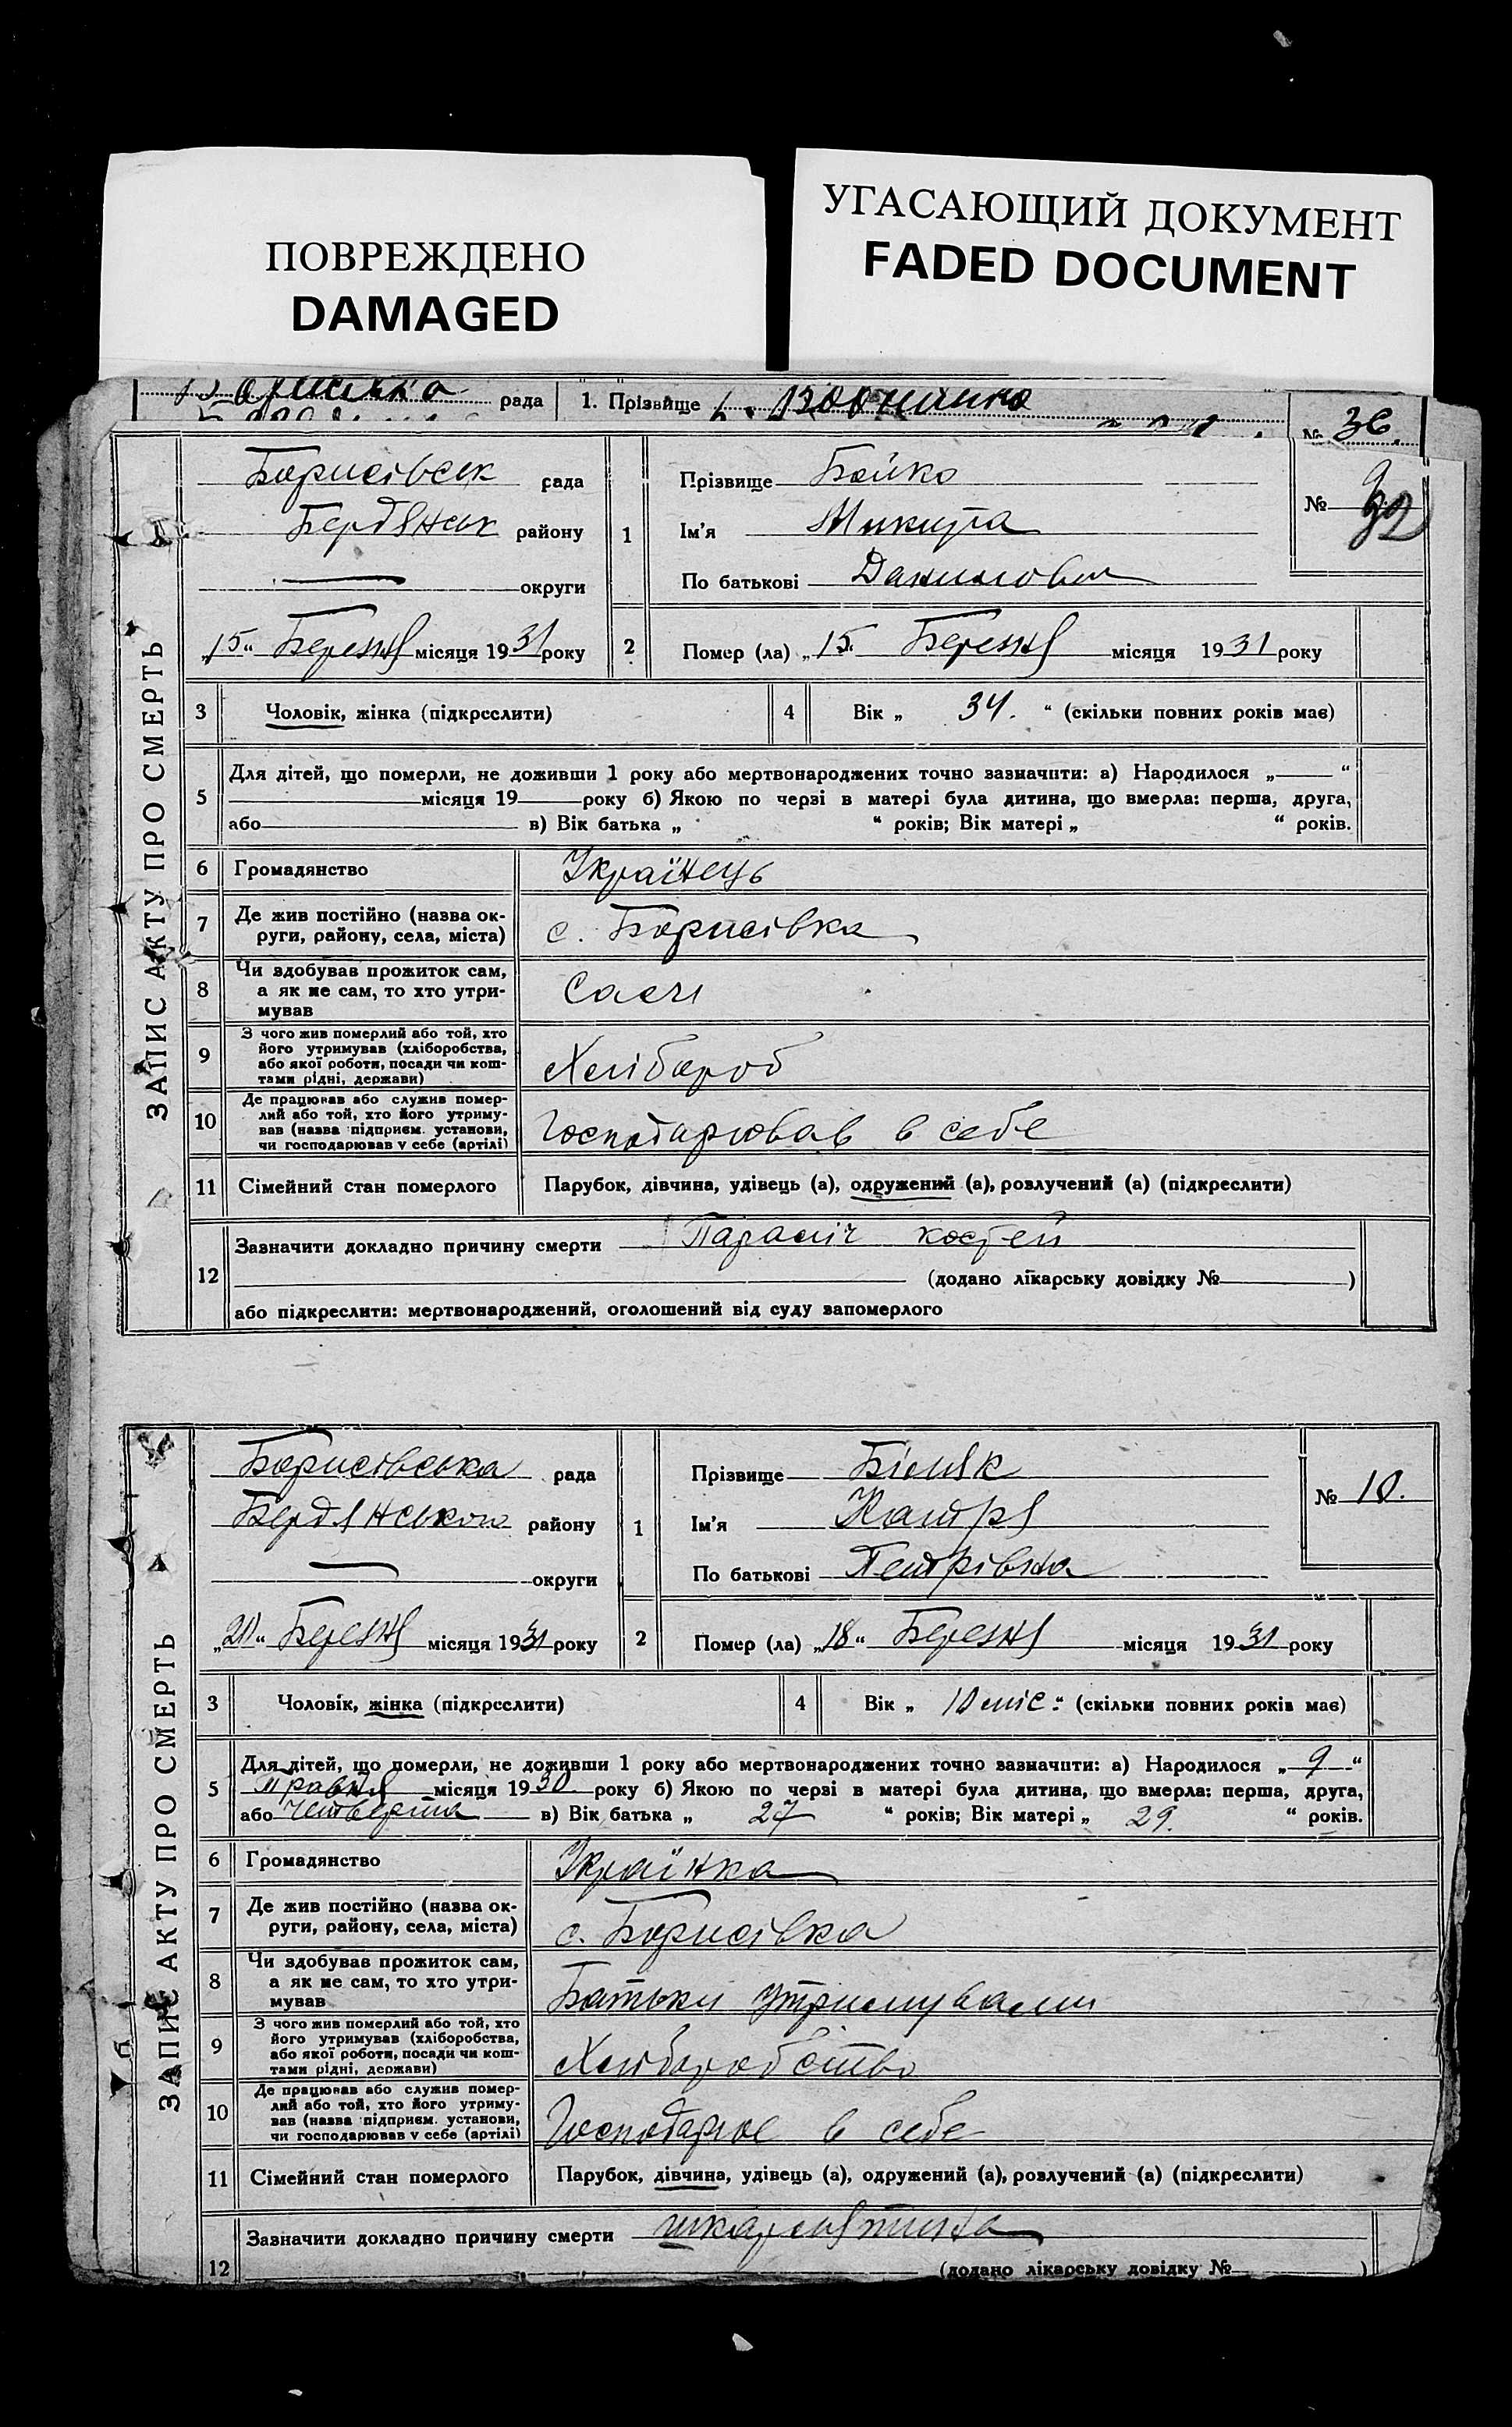 ПОВРЕЖДЕНО
DAMAGED
УГАСАЮЩИЙ ДОКУМЕНТ
FADED DOCUMENT
рада 1. Прізвище
№ 36.
ЗАПИС АКТУ ПРО СМЕРТЬ
Борисівськ рада
Бердянськ району
округи
„15“ Березня місяця 1931 року
1
Прізвище Бойко
Ім'я Микита
По батькові Данилович
№
2 Помер (ла) „15“ Березня місяця 1931 року
3 Чоловік, жінка (підкреслити)
4 Вік „ 34. “ (скільки повних років має)
5 Для дітей, що померли, не доживши 1 року або мертвонароджених точно зазначити: а) Народилося „ “
місяця 19 року б) Якою по черзі в матері була дитина, що вмерла: перша, друга,
або в) Вік батька „ “ років; Вік матері „ “ років.
6 Громадянство Українець
7 Де жив постійно (назва ок-
руги, району, села, міста) с. Борисівка
8 Чи здобував прожиток сам,
а як не сам, то хто утри-
мував Сам
9 З чого жив померлий або той, хто
його утримував (хліборобства,
або якої роботи, посади чи кош-
тами рідні, держави) Хлібороб
10 Де працював або служив помер-
лий або той, хто його утриму-
вав (назва підприєм. установи,
чи господарював у себе (артілі) Господарював в себе
11 Сімейний стан померлого Парубок, дівчина, удівець (а), одружений (а), розлучений (а) (підкреслити)
12 Зазначити докладно причину смерти Параліч костей
(додано лікарську довідку № )
або підкреслити: мертвонароджений, оголошений від суду запомерлого
ЗАПИС АКТУ ПРО СМЕРТЬ
Борисівська рада
Бердянського району
округи
„20“ Березня місяця 1931 року
1
Прізвище Біляк
Ім'я Катря
По батькові Петрівна
№ 10.
2 Помер (ла) „18“ Березня місяця 1931 року
3 Чоловік, жінка (підкреслити)
4 Вік „ 10 міс. “ (скільки повних років має)
5 Для дітей, що померли, не доживши 1 року або мертвонароджених точно зазначити: а) Народилося „ 9 “
Травня місяця 1930 року б) Якою по черзі в матері була дитина, що вмерла: перша, друга,
або Четверта в) Вік батька „ 27 “ років; Вік матері „ 29. “ років.
6 Громадянство Українка
7 Де жив постійно (назва ок-
руги, району, села, міста) с. Борисівка
8 Чи здобував прожиток сам,
а як не сам, то хто утри-
мував Батьки утримували
9 З чого жив померлий або той, хто
його утримував (хліборобства,
або якої роботи, посади чи кош-
тами рідні, держави) Хліборобство
10 Де працював або служив помер-
лий або той, хто його утриму-
вав (назва підприєм. установи,
чи господарював у себе (артілі) Господарює в себе
11 Сімейний стан померлого Парубок, дівчина, удівець (а), одружений (а), розлучений (а) (підкреслити)
12 Зазначити докладно причину смерти шкарлятина
(додано лікарську довідку № )